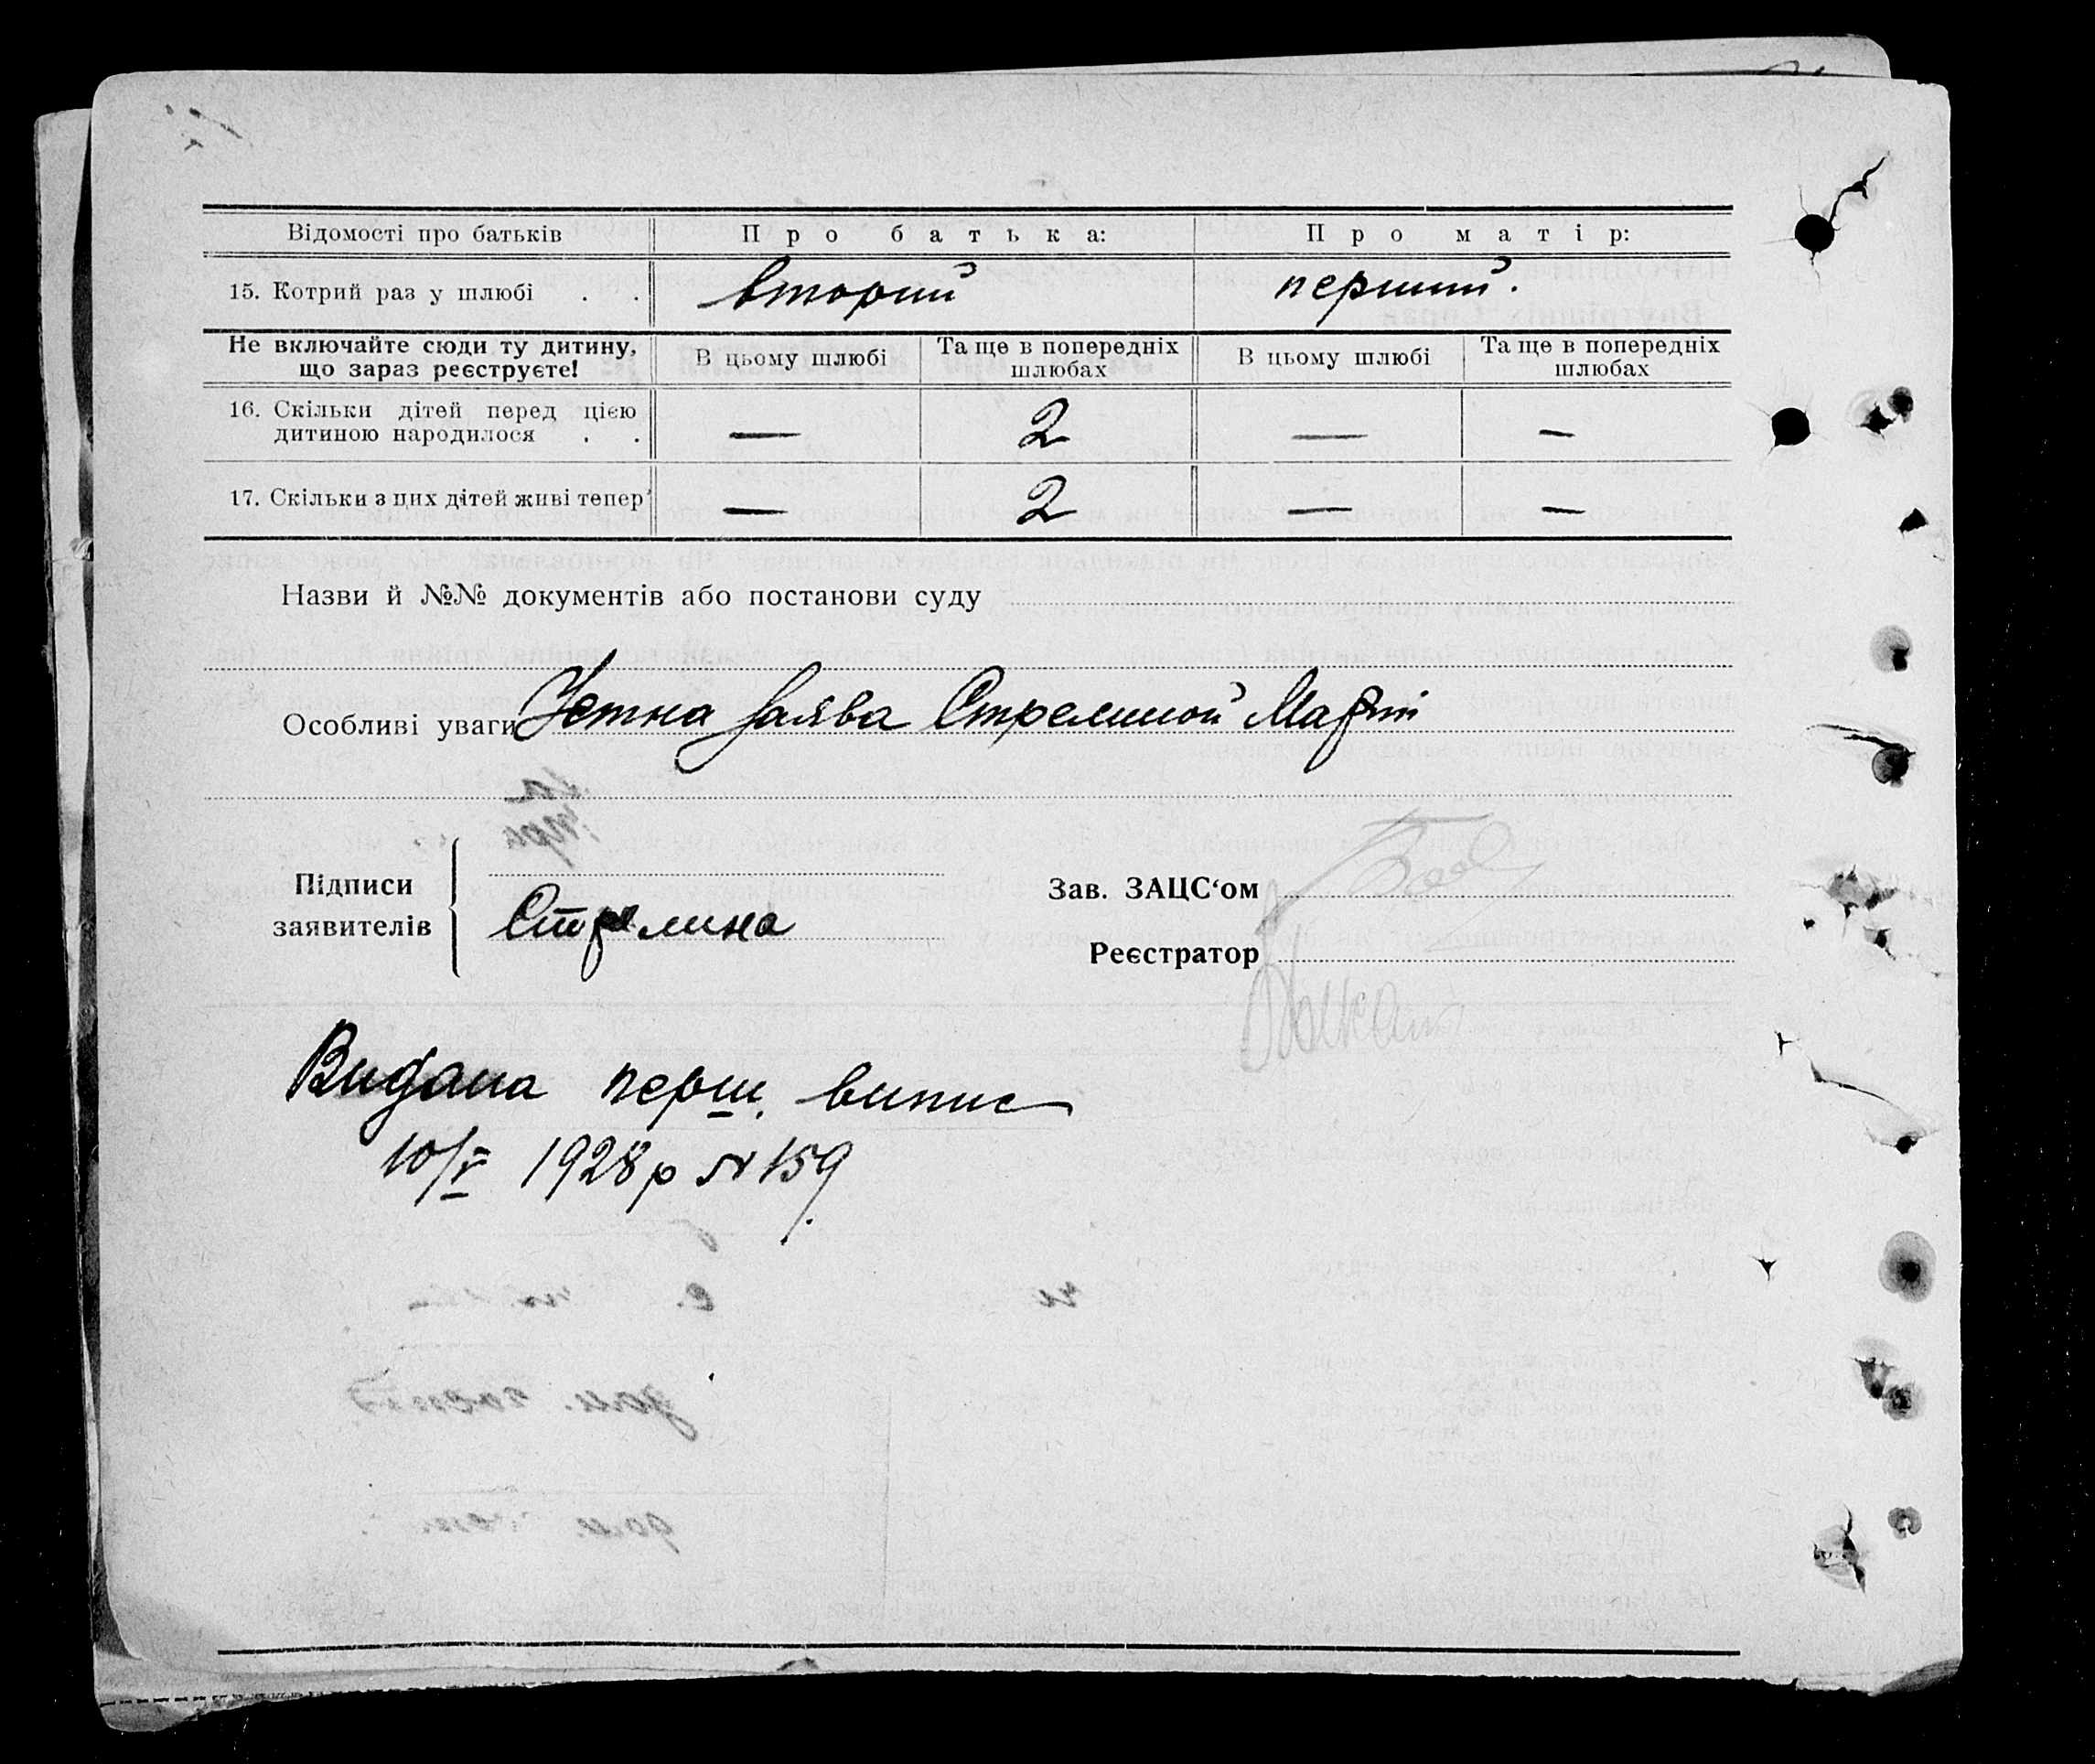 Відомості про батьків Про батька: Про матір:
15. Котрий раз у шлюбі . . вторий перший.
Не включайте сюди ту дитину, що зараз реєструєте! В цьому шлюбі Та ще в попередніх шлюбах В цьому шлюбі Та ще в попередніх шлюбах
16. Скільки дітей перед цією
дитиною народилося . . — 2 — —
17. Скільки з цих дітей живі тепер — 2 — —
Назви й №№ документів або постанови суду
Особливі уваги Устна заява Стрелиной Марії
Підписи
заявителів
Стрелина
Зав. ЗАЦС‘ом
Реєстратор
Видана перш. випис
10/V 1928 р № 159